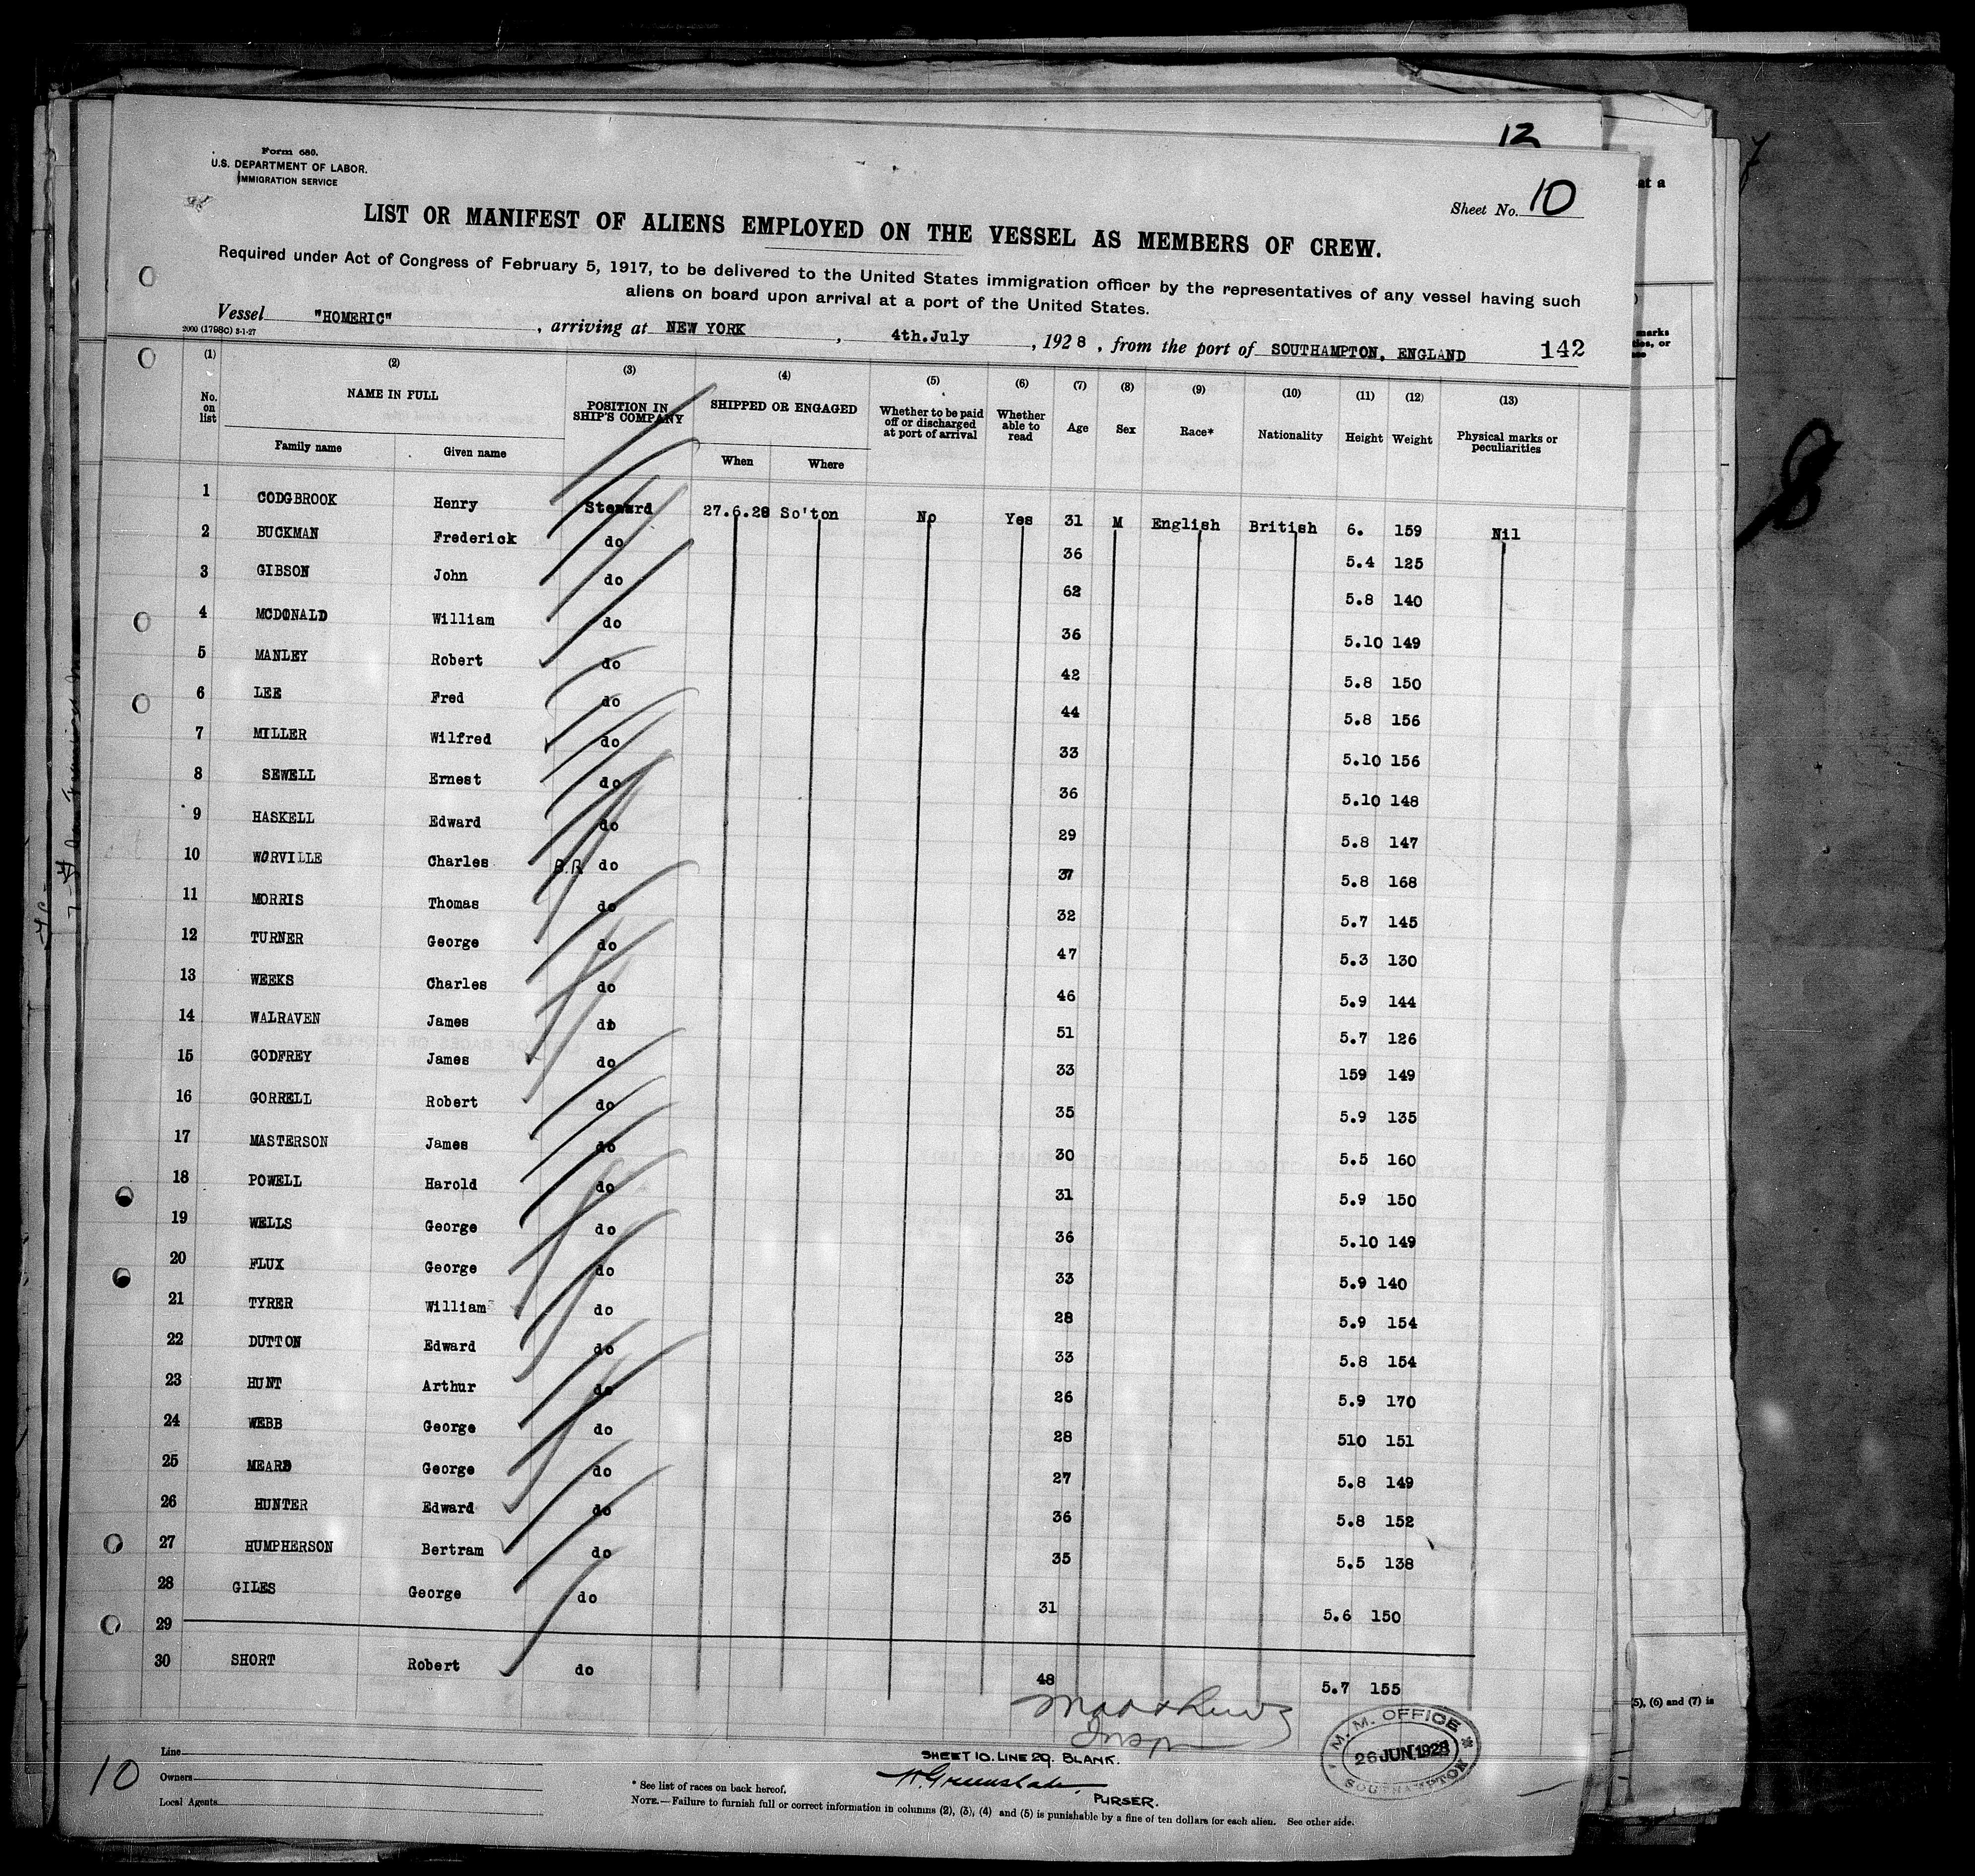 12
Form 680.
U.S. DEPARTMENT OF LABOR.
IMMIGRATION SERVICE
Sheet No. 10
LIST OR MANIFEST OF ALIENS EMPLOYED ON THE VESSEL AS MEMBERS OF CREW.
Required under Act of Congress of February 5, 1917, to be delivered to the United States immigration officer by the representatives of any vessel having such
aliens on board upon arrival at a port of the United States.
Vessel "HOMERIC", arriving at NEW YORK, 4th.July, 1928, from the port of SOUTHAMPTON, ENGLAND 142
2000 (1798C) 3-1-27
(1) (2) (3) (4) (5) (6) (7) (8) (9) (10) (11) (12) (13)
No. on list NAME IN FULL POSITION IN SHIP'S COMPANY SHIPPED OR ENGAGED Whether to be paid off or discharged at port of arrival Whether able to read Age Sex Race* Nationality Height Weight Physical marks or peculiarities
Family name Given name When Where
1 CODGBROOK Henry Steward 27.6.28 So'ton No Yes 31 M English British 6. 159 Nil
2 BUCKMAN Frederick do 36 5.4 125
3 GIBSON John do 62 5.8 140
4 MCDONALD William do 36 5.10 149
5 MANLEY Robert do 42 5.8 150
6 LEE Fred do 44 5.8 156
7 MILLER Wilfred do 33 5.10 156
8 SEWELL Ernest do 36 5.10 148
9 HASKELL Edward do 29 5.8 147
10 WORVILLE Charles B.R do 37 5.8 168
11 MORRIS Thomas do 32 5.7 145
12 TURNER George do 47 5.3 130
13 WEEKS Charles do 46 5.9 144
14 WALRAVEN James do 51 5.7 126
15 GODFREY James do 33 159 149
16 GORRELL Robert do 35 5.9 135
17 MASTERSON James do 30 5.5 160
18 POWELL Harold do 31 5.9 150
19 WELLS George do 36 5.10 149
20 FLUX George do 33 5.9 140
21 TYRER William do 28 5.9 154
22 DUTTON Edward do 33 5.8 154
23 HUNT Arthur do 26 5.9 170
24 WEBB George do 28 510 151
25 MEARS George do 27 5.8 149
26 HUNTER Edward do 36 5.8 152
27 HUMPHERSON Bertram do 35 5.5 138
28 GILES George do 31 5.6 150
29
30 SHORT Robert do 48 5.7 155
Matthews
Insp
M. M. OFFICE
26 JUN 1928
SOUTHAMPTON
10
Line
Owners
Local Agents
SHEET 10. LINE 29. BLANK.
H. Greenslade
PURSER.
* See list of races on back hereof.
NOTE.—Failure to furnish full or correct information in columns (2), (3), (4) and (5) is punishable by a fine of ten dollars for each alien. See other side.
at a
marks
ties, or
5), (6) and (7) is
8